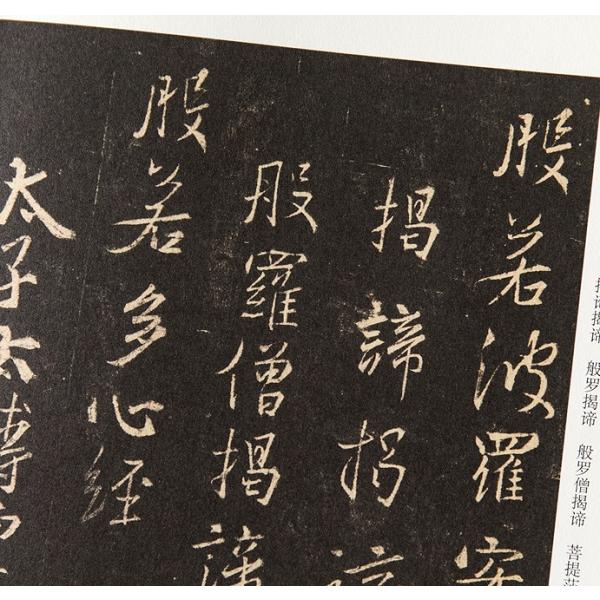 揭谛 般罗揭谛 般罗僧揭谛 菩提
般若波羅
揭諦揭
般羅僧揭
般若多心經
太子太傅